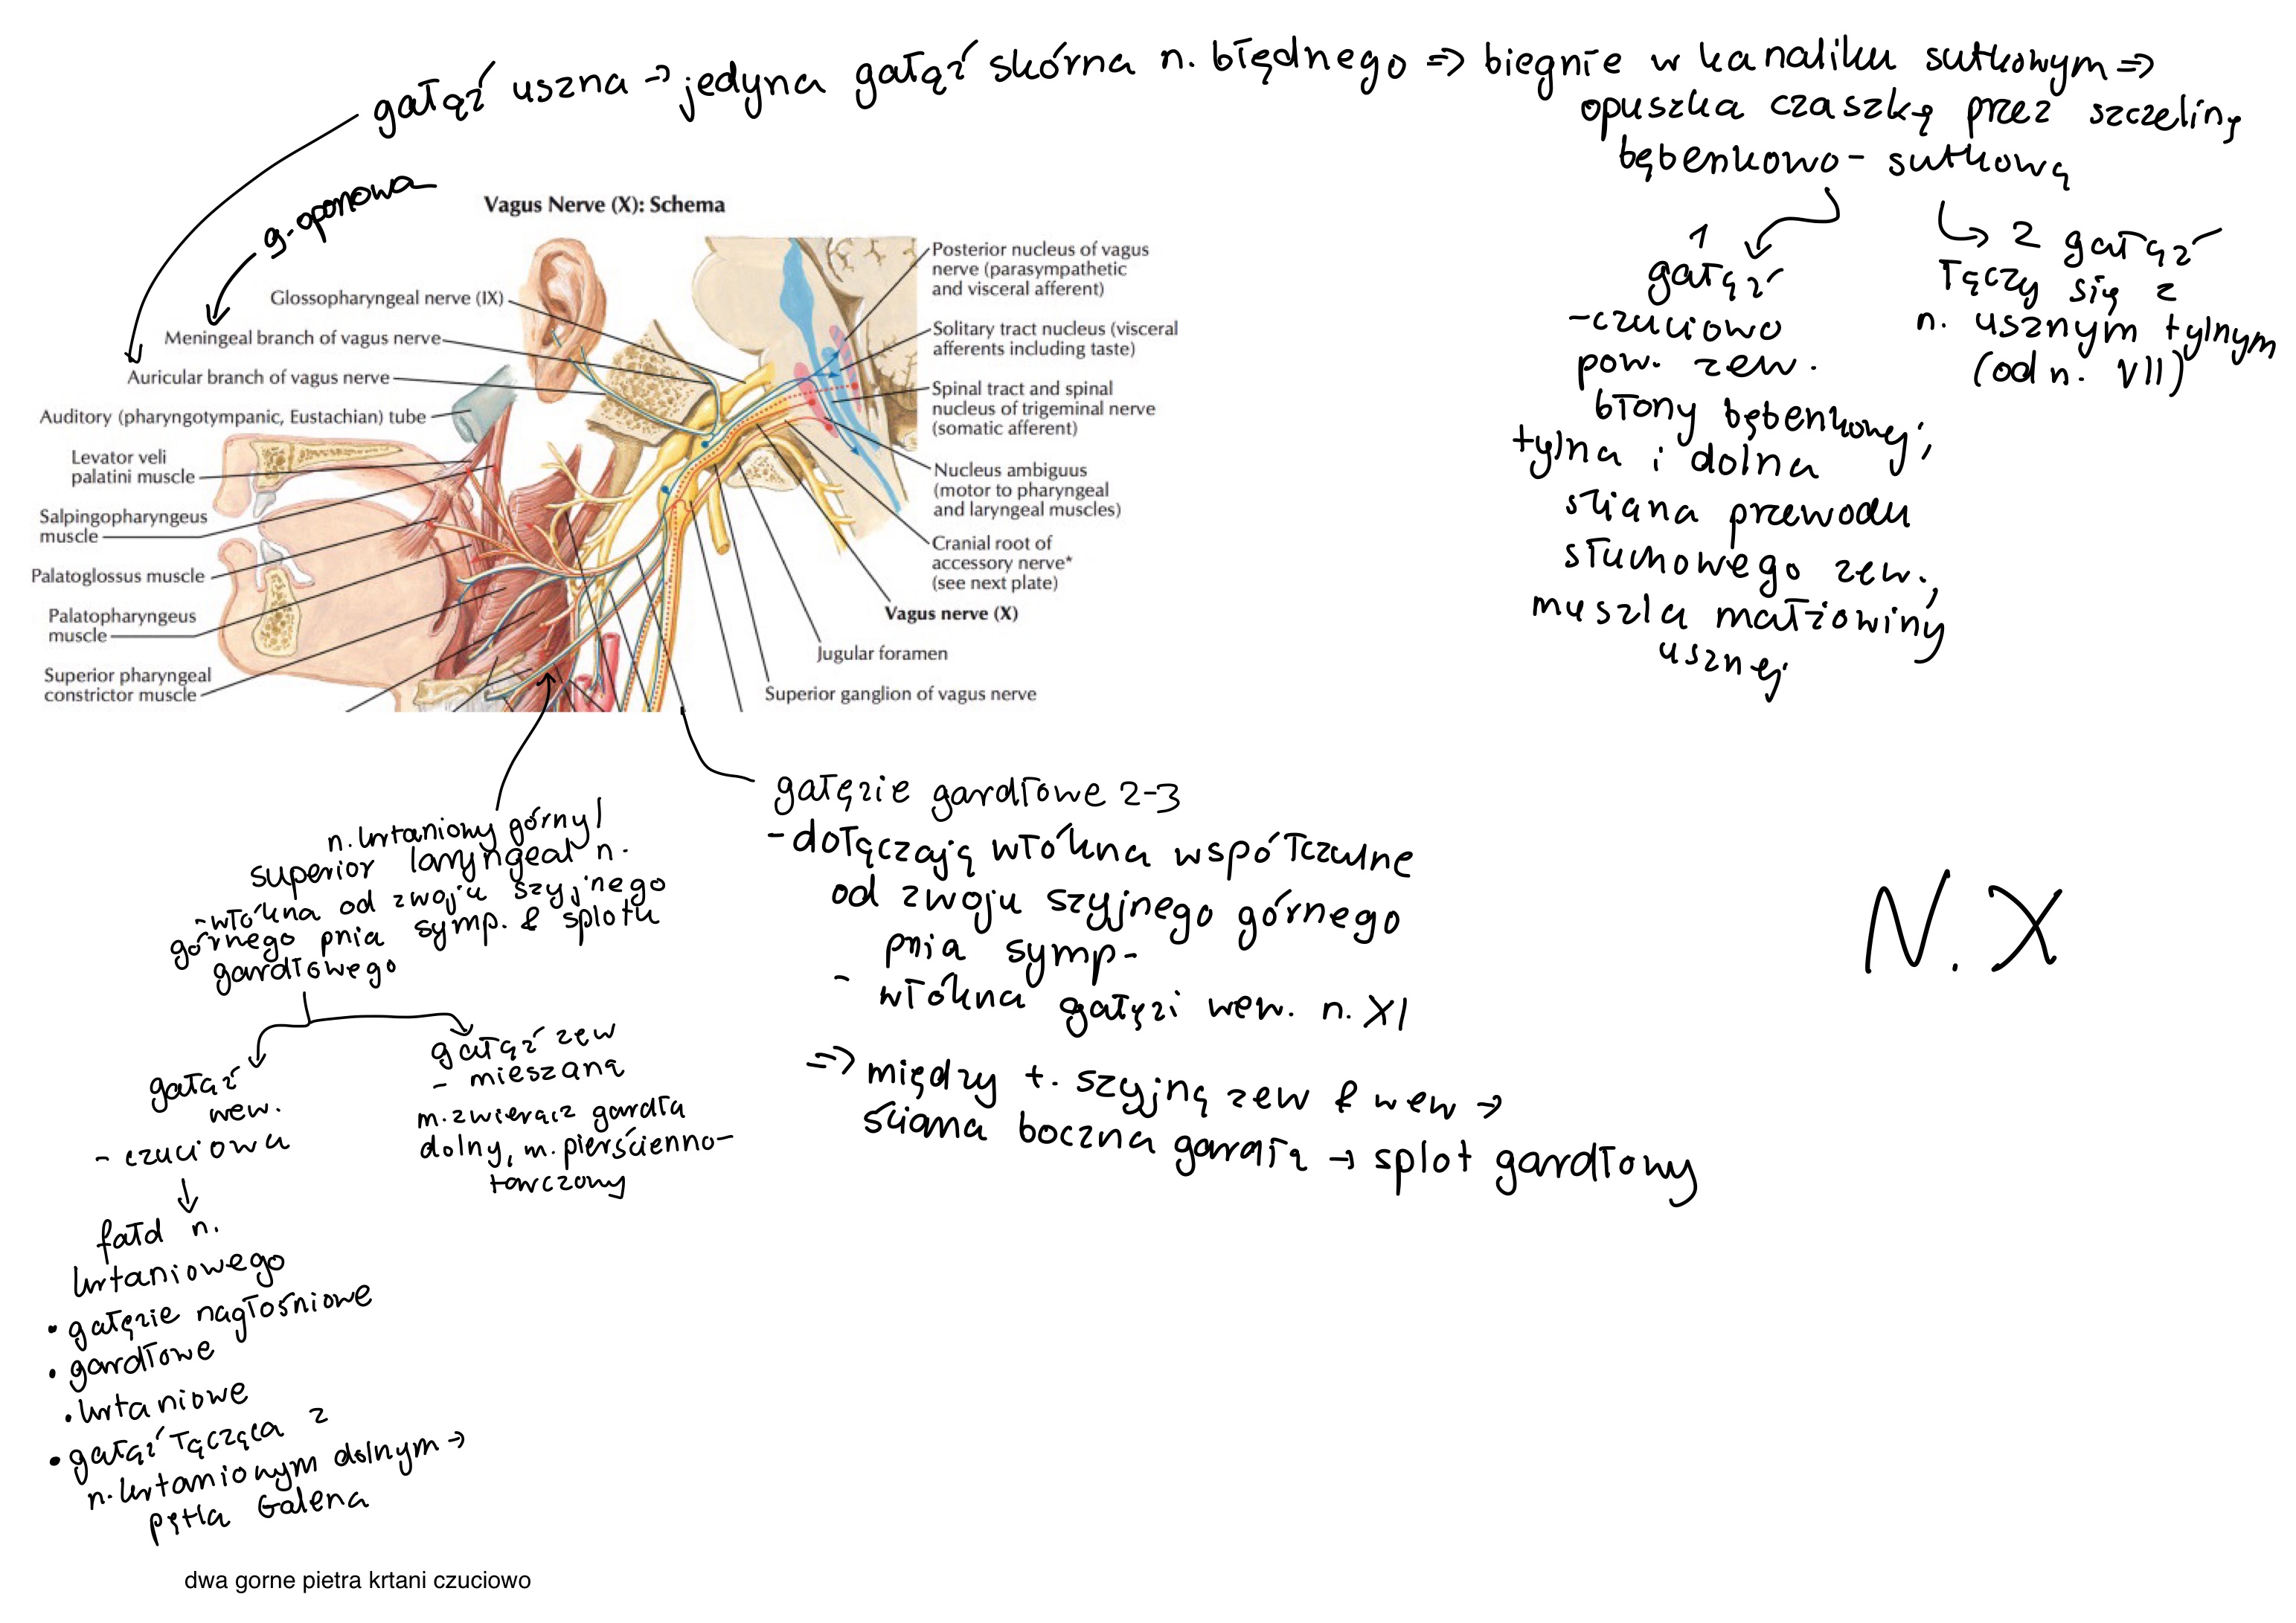 gałąź uszna → jedyna gałąź skórna n. błędnego => biegnie w kanaliku sutkowym =>
opuszka czaszkę przez szczelinę
bębenkowo - sutkową
1
gałąź
- czuciowo
pow. zew.
błony bębenkowej;
tylna i dolna
ściana przewodu
słuchowego zew.,
muszla małżowiny
usznej
2 gałąź
łączy się z
n. usznym tylnym
(od n. VII)
g. oponowa
Vagus Nerve (X): Schema
Glossopharyngeal nerve (IX)
Meningeal branch of vagus nerve
Auricular branch of vagus nerve
Auditory (pharyngotympanic, Eustachian) tube
Levator veli
palatini muscle
Salpingopharyngeus
muscle
Palatoglossus muscle
Palatopharyngeus
muscle
Superior pharyngeal
constrictor muscle
Posterior nucleus of vagus
nerve (parasympathetic
and visceral afferent)
Solitary tract nucleus (visceral
afferents including taste)
Spinal tract and spinal
nucleus of trigeminal nerve
(somatic afferent)
Nucleus ambiguus
(motor to pharyngeal
and laryngeal muscles)
Cranial root of
accessory nerve*
(see next plate)
Vagus nerve (X)
Jugular foramen
Superior ganglion of vagus nerve
n. krtaniowy górny /
superior laryngeal n.
- włókna od zwoju szyjnego
górnego pnia symp. & splotu
gardłowego
gałąź
wew.
- czuciowa
fałd n.
krtaniowego
• gałęzie nagłośniowe
• gardłowe
• krtaniowe
• gałąź łącząca z
n. krtaniowym dolnym →
pętla Galena
gałąź zew
- mieszana
m. zwieracz gardła
dolny, m. pierścienno-
tarczowy
gałęzie gardłowe 2-3
- dołączają włókna współczulne
od zwoju szyjnego górnego
pnia symp-
- włókna gałęzi wew. n. XI
=> między t. szyjną zew & wew →
ściana boczna gardła → splot gardłowy
N. X
dwa gorne pietra krtani czuciowo